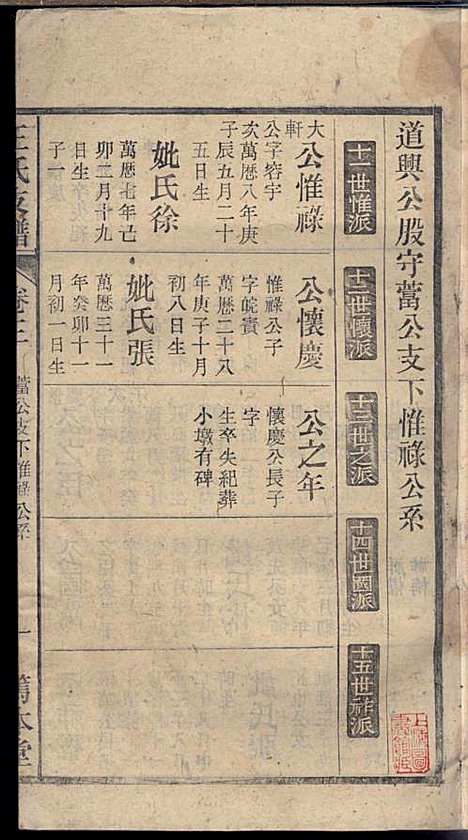 道興公股守蕾公支下惟祿公系
十一世惟派
十二世懷派
十三世之派
十四世國派
十五世祚派
公惟祿
大軒
公字容宇
次萬曆八年庚
子辰五月二十
五日生
妣氏徐
萬曆七年亡
卯二月十九
日生
子一
公懷慶
惟祿公子
字皖實
萬曆二十八
年庚子十月
初八日生
妣氏張
萬曆三十一
年癸卯十一
月初一日生
公之年
懷慶公長子
字
生卒失紀葬
小墩有碑
王氏支譜
卷十二
蕾公支下惟祿公系
一